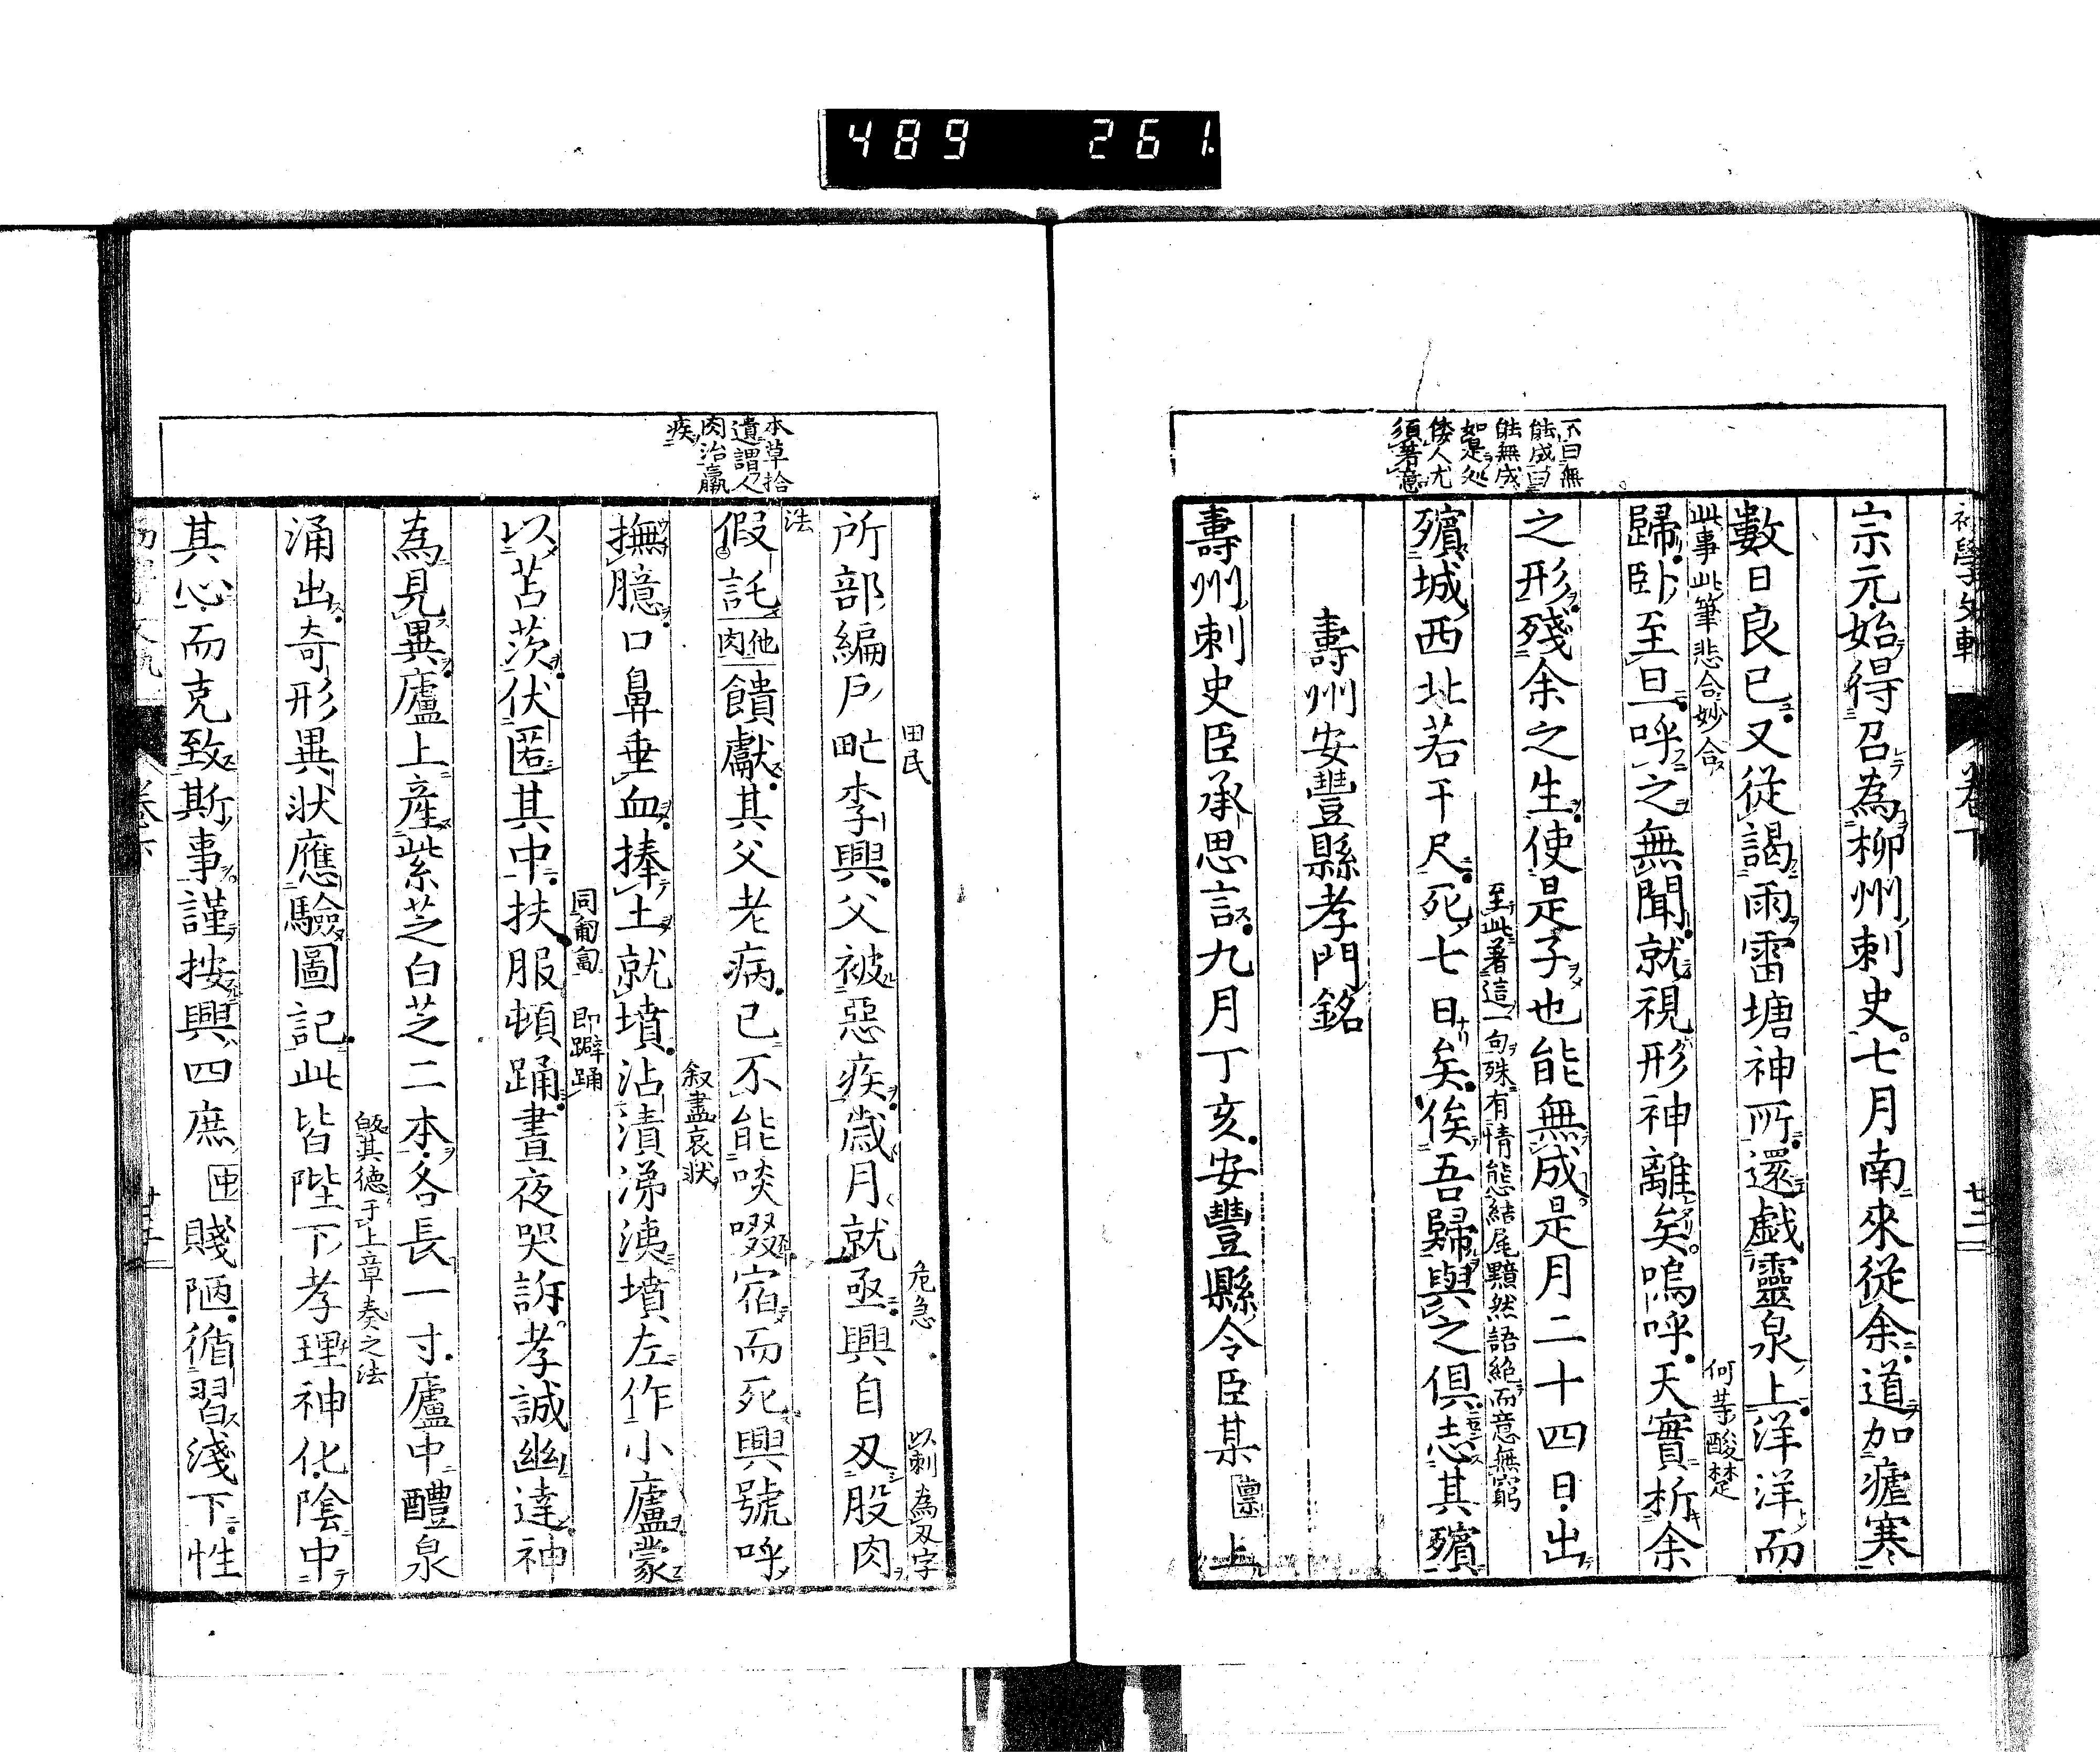 489 261
初學文軌 卷下 廿二
不曰無
能成曰
能無成
如是処
倭人尤
須著意
宗元始得召為柳州刺史七月南來從余道加瘧寒
數日良已又從謁雨雷塘神所還戯靈泉上洋洋而
此事此筆悲合妙合 何等酸楚
歸臥至旦呼之無聞就視形神離矣嗚呼天實析余
之形殘余之生使是子也能無成是月二十四日出
至此著這一句殊有情態結尾黯然語絶而意無窮
殯城西北若干尺死七日矣俟吾歸與之俱志其殯
壽州安豐縣孝門銘
壽州刺史臣承思言九月丁亥安豐縣令臣某稟上
本草拾
遺謂人
肉治羸
疾
田民 危急 以刺為刃字
所部編戶甿李興父被惡疾歲月就亟興自刃股肉
法
假託他肉饋獻其父老病已不能啖啜宿而死興號呼
叙盡哀状
撫臆口鼻垂血捧土就墳沾漬涕洟墳左作小廬蒙
同匍匐 即躃踊
以苫茨伏匿其中扶服頓踊晝夜哭訴孝誠幽達神
為見異廬上產紫芝白芝二本各長一寸廬中醴泉
皈其德于上章奏之法
涌出奇形異狀應驗圖記此皆陛下孝理神化陰中
其心而克致斯事謹按興四庶 賤陋循習淺下性
卷下